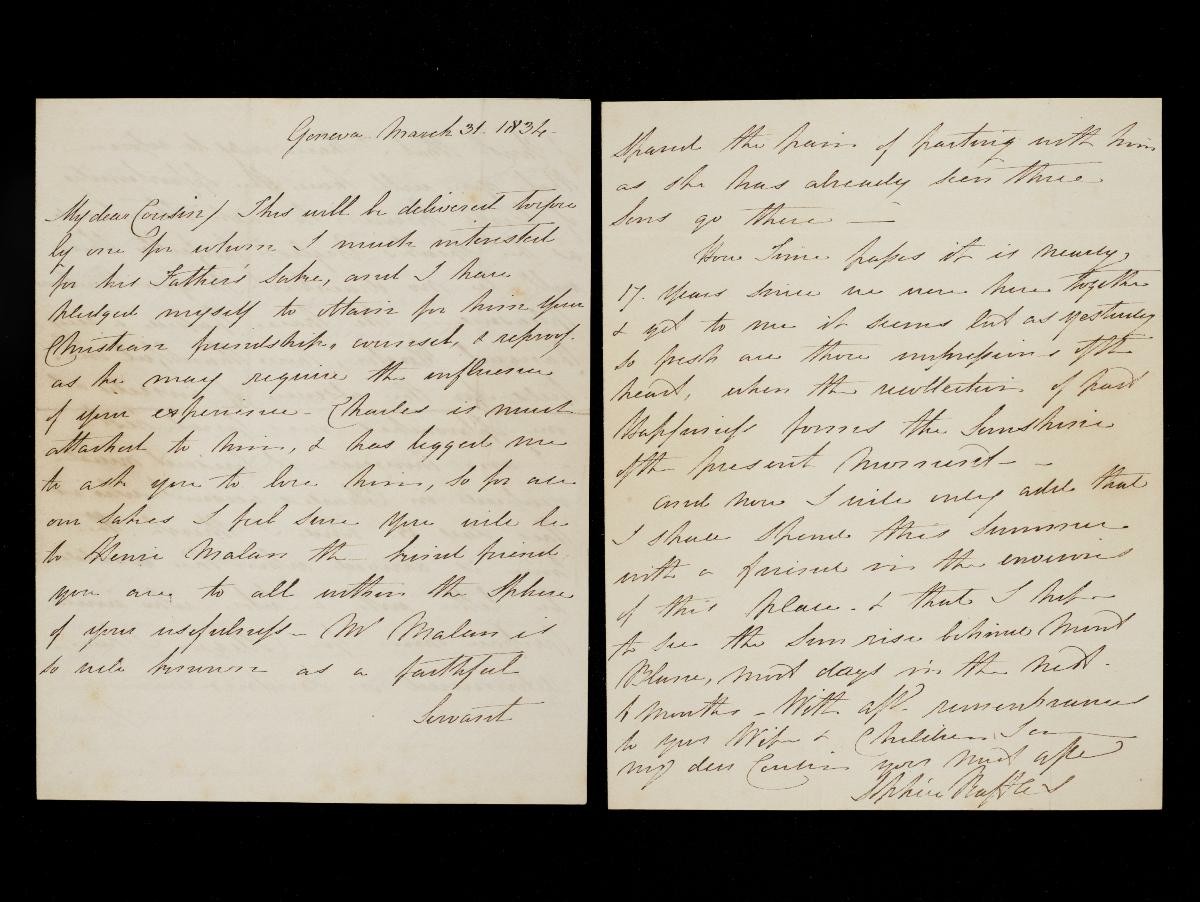 Geneva March 31. 1834.
My dear Cousin/ This will be delivered to you
by one for whom I much interested
for his Father's sake, and I have
pledged myself to obtain for him your
Christian friendship, counsel, & reproof.
as he may require the influence
of your experience - Charles is much
attached to him, & has begged me
to ask you to love him, so for all
our sakes I feel sure you will be
to Henri Malan the kind friend
you are to all within the sphere
of your usefulness - Mr Malan is
so well known as a faithful
Servant
spared the pain of parting with him
as she has already seen three
Sons go there —
How Time passes it is nearly
17. years since we were here together
& yet to me it seems but as yesterday
so fresh are those impressions of the
heart, when the recollection of past
Happiness forms the Sunshine
of the present moment - -
and now I will only add that
I shall spend this summer
with a friend in the environs
of this place - & that I hope
to see the Sun rise behind Mont
Blanc, most days in the next
6 months - With aff. remembrances
to your Wife & Children I am
my dear Cousin yours most affec
Sophia Raffles